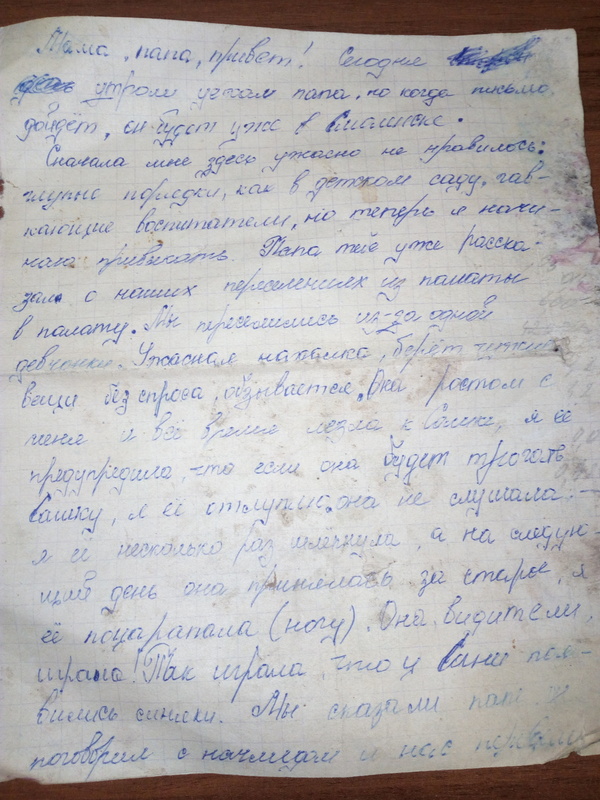 Мама, папа, привет! Сегодня
утром уехал папа, но когда письмо
дойдёт, он будет уже в Смоленске.
Сначала мне здесь ужасно не нравилось:
глупые порядки, как в детском саду, гав-
кающие воспитатели, но теперь я начи-
наю привыкать. Папа уже расска-
зал о наших переселениях из палаты
в палату. Мы переселились из-за одной
девчонки. Ужасная нахалка, берёт чужие
вещи без спроса, обзывается. Она ростом с
меня и всё время лезла к Сашке, я её
предупредила, что если она будет трогать
Сашку, я её отлуплю, она не слушала,
я её несколько раз шлёпнула, а на следую
щий день она принялась за старое, я
её поцарапала (ногу). Она, видите ли,
играла! Так играла, что у Сани поя-
вились синяки. Мы сказали папе и
поговорил с начмедом и нас перевели